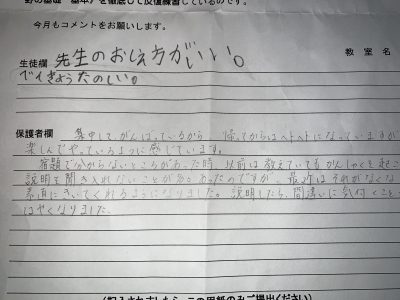 野の基礎・基本》を徹底して反復練習しているのです。
今月もコメントをお願いします。
教室名
生徒欄 先生のおしえ方がいい。
でてきょうたのしい。
保護者欄 集中して、がんばっているから、帰ってからはヘトヘトになっていますが
楽しんでやっているように感じています。
宿題で分からないところがあった時、以前は教えていてもかんしゃくを起こ
説明を聞き入れないことが多々あったのですが、最近はそれがなくな
素直にきいてくれるようになりました。説明したら、間違いに気付くこと
はやくなりました。
(記入されましたら、この用紙のみご提出ください)